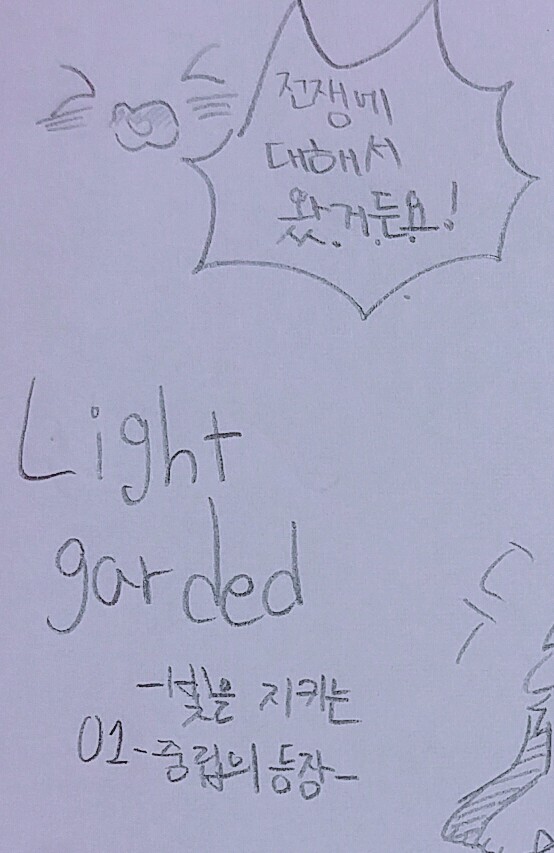 전쟁에
대해서
왔거든요!
Light
garded
-빛을 지키는
01-중립의 등장-